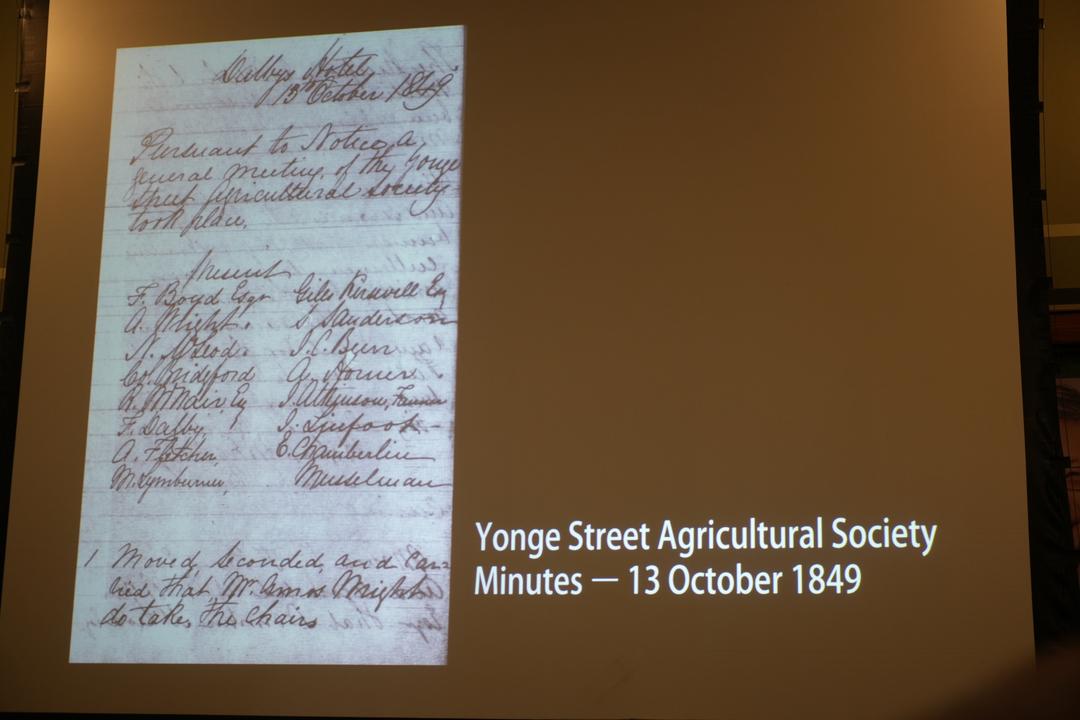 Dalbys Hotel
13th October 1849
Pursuant to Notice a
general meeting of the Yonge
Street Agricultural Society
took place.
Present
F. Boyd Esqr Giles
A. Wright S. Sanderson
N. McLeod
Col. Bridgford A. Horner
R. McNair Esq J. Atkinson,
F. Dalby J. Linfoot
A. Fletcher E. Chamberlin
M. Lymburner, Musselman
1 Moved, Seconded, and Car=
ried that, Mr. Amos Wright
do take, the Chair
Yonge Street Agricultural Society
Minutes — 13 October 1849